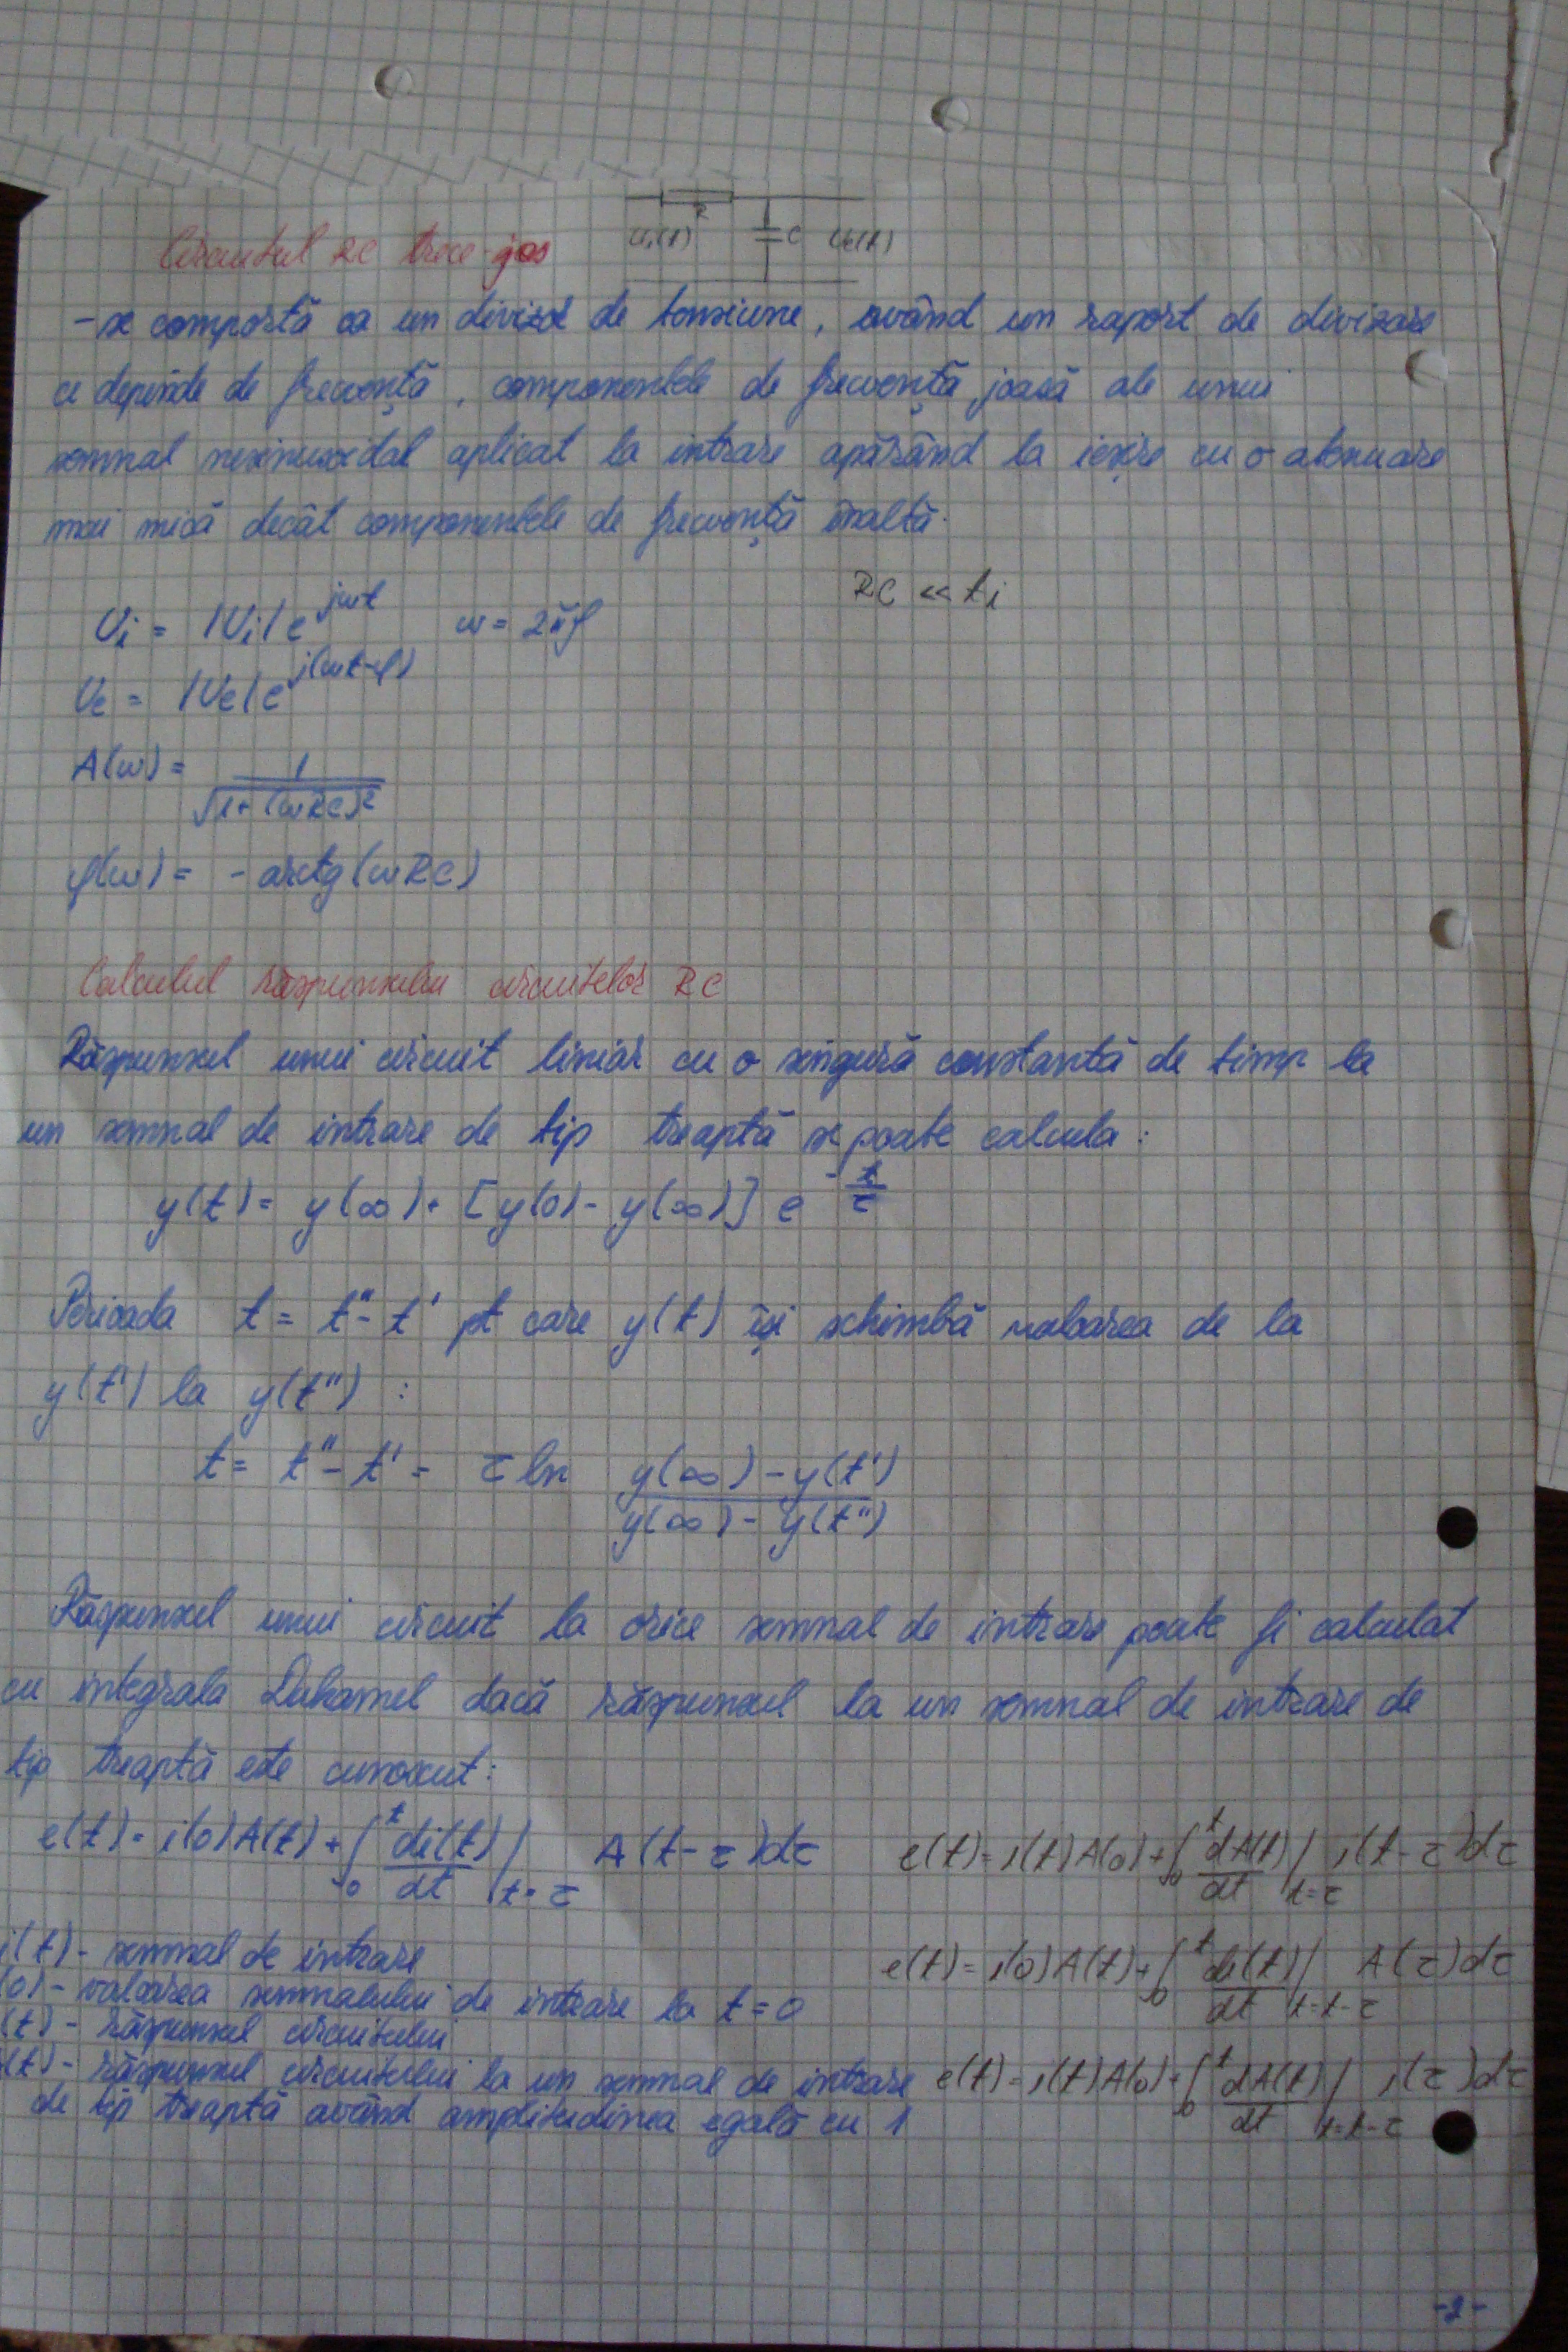 R
Circuitul RC trece-jos Ui(t) C Ue(t)
- se comportă ca un divizor de tensiune, având un raport de divizare
ce depinde de frecvență, componentele de frecvență joasă ale unui
semnal nesinusoidal aplicat la intrare apărând la ieșire cu o atenuare
mai mică decât componentele de frecvență înaltă.
RC << ti
Ui = |Ui| e^{jωt} ω = 2πf
Ue = |Ue| e^{j(ωt-φ)}
A(ω) = 1/√(1+(ωRC)²)
φ(ω) = - arctg(ωRC)
Calculul răspunsului circuitelor RC
Răspunsul unui circuit liniar cu o singură constantă de timp la
un semnal de intrare de tip treaptă se poate calcula:
y(t) = y(∞) + [y(0) - y(∞)] e^{-t/τ}
Perioada t = t'' - t' pt care y(t) își schimbă valoarea de la
y(t') la y(t'') :
t = t'' - t' = τ ln (y(∞) - y(t'))/(y(∞) - y(t''))
Răspunsul unui circuit la orice semnal de intrare poate fi calculat
cu integrala Duhamel dacă răspunsul la un semnal de intrare de
tip treaptă este cunoscut:
e(t) = i(0)A(t) + ∫₀^t di(t)/dt |t=τ A(t-τ)dτ
e(t) = i(t)A(0) + ∫₀^t dA(t)/dt |t=τ i(t-τ)dτ
i(t) - semnal de intrare
e(t) = i(0)A(t) + ∫₀^t di(t)/dt |t=t-τ A(τ)dτ
(0) - valoarea semnalului de intrare la t=0
(t) - răspunsul circuitului
(t) - răspunsul circuitului la un semnal de intrare
e(t) = i(t)A(0) + ∫₀^t dA(t)/dt |t=t-τ i(τ)dτ
de tip treaptă având amplitudinea egală cu 1
-2-